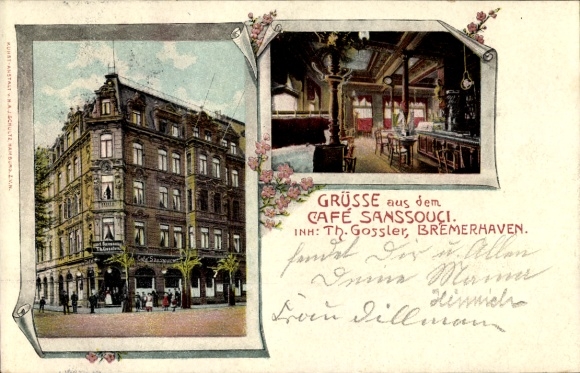 KUNST-ANSTALT v. H.& J. SCHULTZ, HAMBURG
Café Sanssouci
GRÜSSE aus dem
CAFÉ SANSSOUCI.
INH: Th. Gossler, BREMERHAVEN.
sendet Dir u. Allen
Deine Mama
Heinrich
Frau Dillman